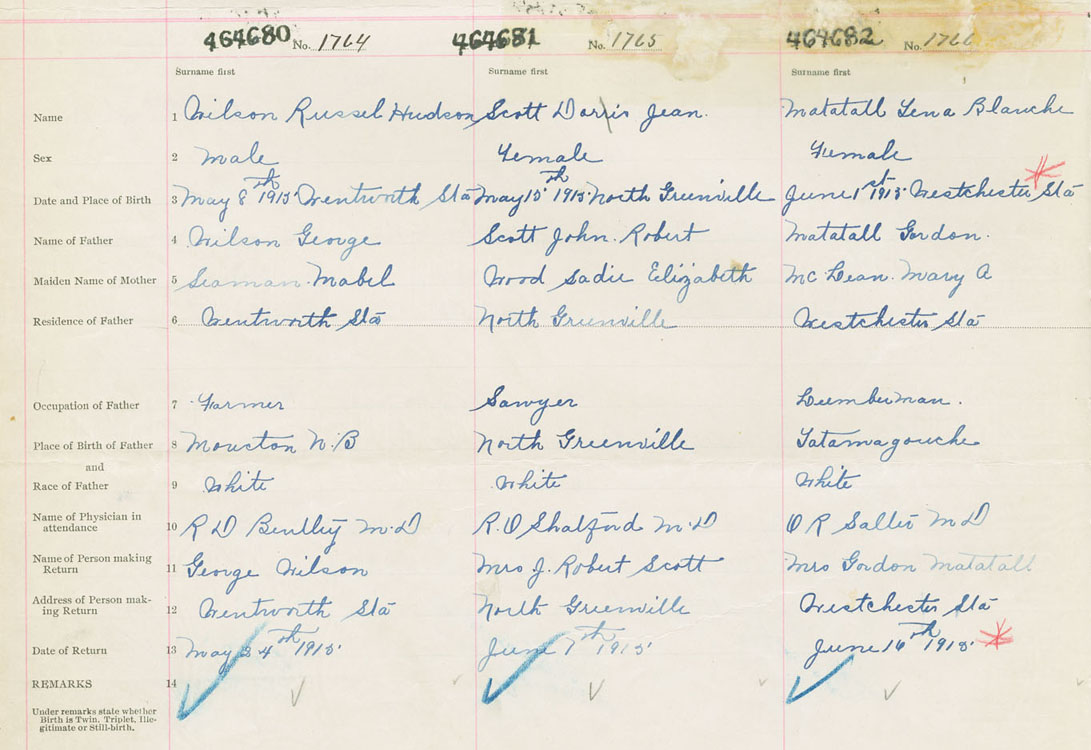 464680 No. 1764 464681 No. 1765 464682 No. 1766
Surname first Surname first Surname first
Name 1 Wilson Russel Hudson Scott Dorris Jean. Matatall Lena Blanche
Sex 2 Male Female Female
Date and Place of Birth 3 May 8th 1915 Wentworth Sta May 15th 1915 North Greenville June 1st 1915 Westchester Sta
Name of Father 4 Wilson George Scott John. Robert Matatall Gordon.
Maiden Name of Mother 5 Seaman. Mabel Wood Sadie Elizabeth McLean. Mary A
Residence of Father 6 Wentworth Sta North Greenville Westchester Sta
Occupation of Father 7 Farmer Sawyer Lumberman.
Place of Birth of Father 8 Moncton N.B North Greenville Tatamagouche
and
Race of Father 9 White White White
Name of Physician in
attendance 10 R D Bentley M.D R.O Shatford M.D O R Salter M D
Name of Person making
Return 11 George Wilson Mrs J. Robert Scott Mrs Gordon Matatall
Address of Person mak-
ing Return 12 Wentworth Sta North Greenville Westchester Sta
Date of Return 13 May 24th 1915 June 7th 1915 June 16th 1915
REMARKS 14
Under remarks state whether
Birth is Twin, Triplet, Ille-
gitimate or Still-birth.